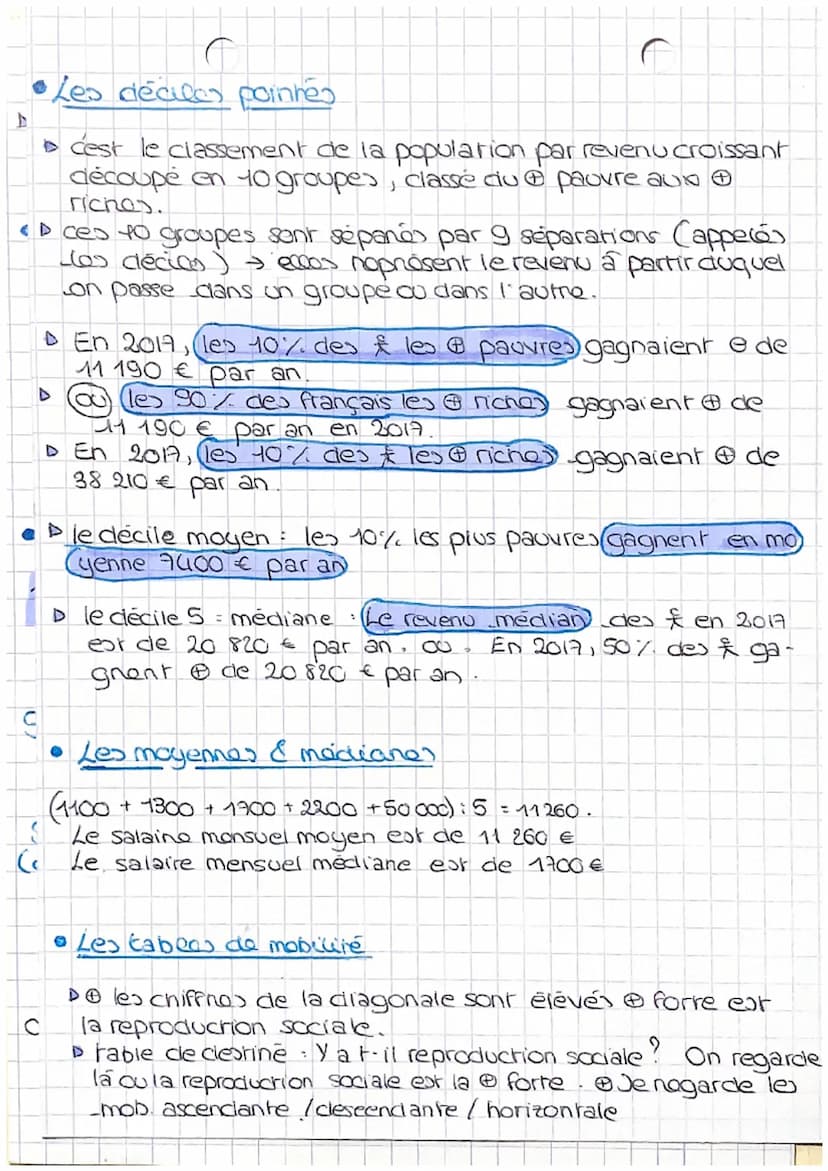 • Les déciles pointés
▷ c'est le classement de la population par revenu croissant
découpé en 10 groupes, classé du ⊕ pauvre aux ⊕
riches.
▷ ces 10 groupes sont séparés par 9 séparations (appelés
les déciles) → elles reprèsent le revenu à partir duquel
on passe dans un groupe ou dans l'autre.
▷ En 2017, les 10% des 웃 les ⊕ pauvres gagnaient ⊖ de
11 190 € par an.
▷ ou les 90% des français les ⊕ riches gagnaient ⊕ de
11 190 € par an en 2017.
▷ En 2017, les 10% des 웃 les ⊕ riches gagnaient ⊕ de
38 210 € par an.
• ▷ le décile moyen : les 10% les plus pauvres gagnent en mo
yenne 7400 € par an
▷ le décile 5 = médiane : Le revenu médian des 웃 en 2017
est de 20 820 € par an. ou. En 2017, 50% des 웃 ga-
gnent ⊕ de 20 820 € par an.
• Les moyennes & médianes
(1100 + 1300 + 1700 + 2200 + 50 000) : 5 = 11260.
Le salaire mensuel moyen est de 11 260 €
Le salaire mensuel médiane est de 1700 €
• Les tables de mobilité
▷ ⊕ les chiffres de la diagonale sont élevés ⊕ forte est
la reproduction sociale.
▷ table de destiné : Y a t-il reproduction sociale ? On regarde
là ou la reproduction sociale est la ⊕ forte. ⊕ Je regarde les
mob. ascendante / descendante / horizontale